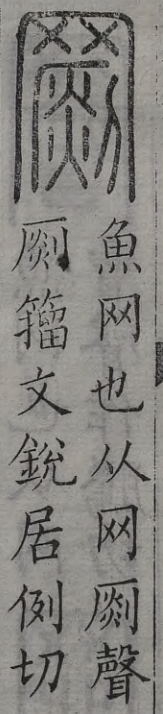 罽
魚网也从网𠟩聲
𠟩籀文銳居例切